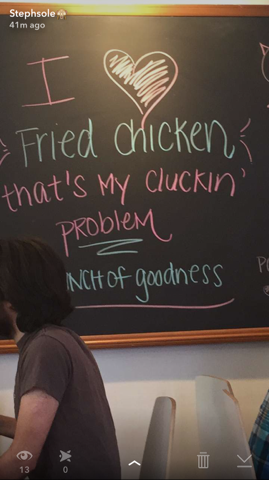 Stephsole
41m ago
I
Fried chicken
that's my cluckin'
PROBLEM
NCH OF goodness
13
0